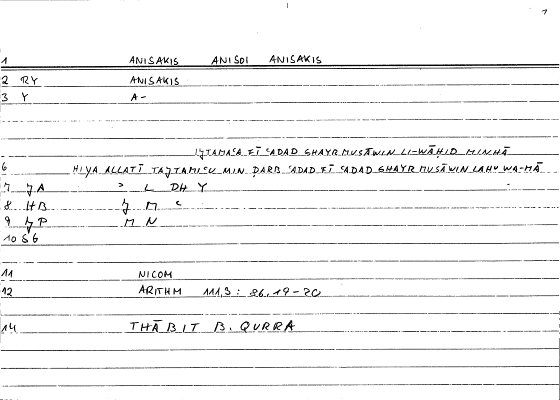 1 ANISAKIS ANISOI ANISAKIS
2 RY ANISAKIS
3 Y A-
IǮTAMAʿA FĪ ʿADAD GHAYR MUSĀWIN LI-WĀḤID MINHĀ
6 HIYA ALLATĪ TAǮTAMIʿU MIN ḌARB ʿADAD FĪ ʿADAD GHAYR MUSĀWIN LAHU WA-MĀ
7 ǮA ʾ L DH Y
8 HB Ǯ M ʿ
9 ǮP M N
10 S6
11 NICOM
12 ARITHM 111,3: 86,19-20
14 THĀBIT B. QURRA